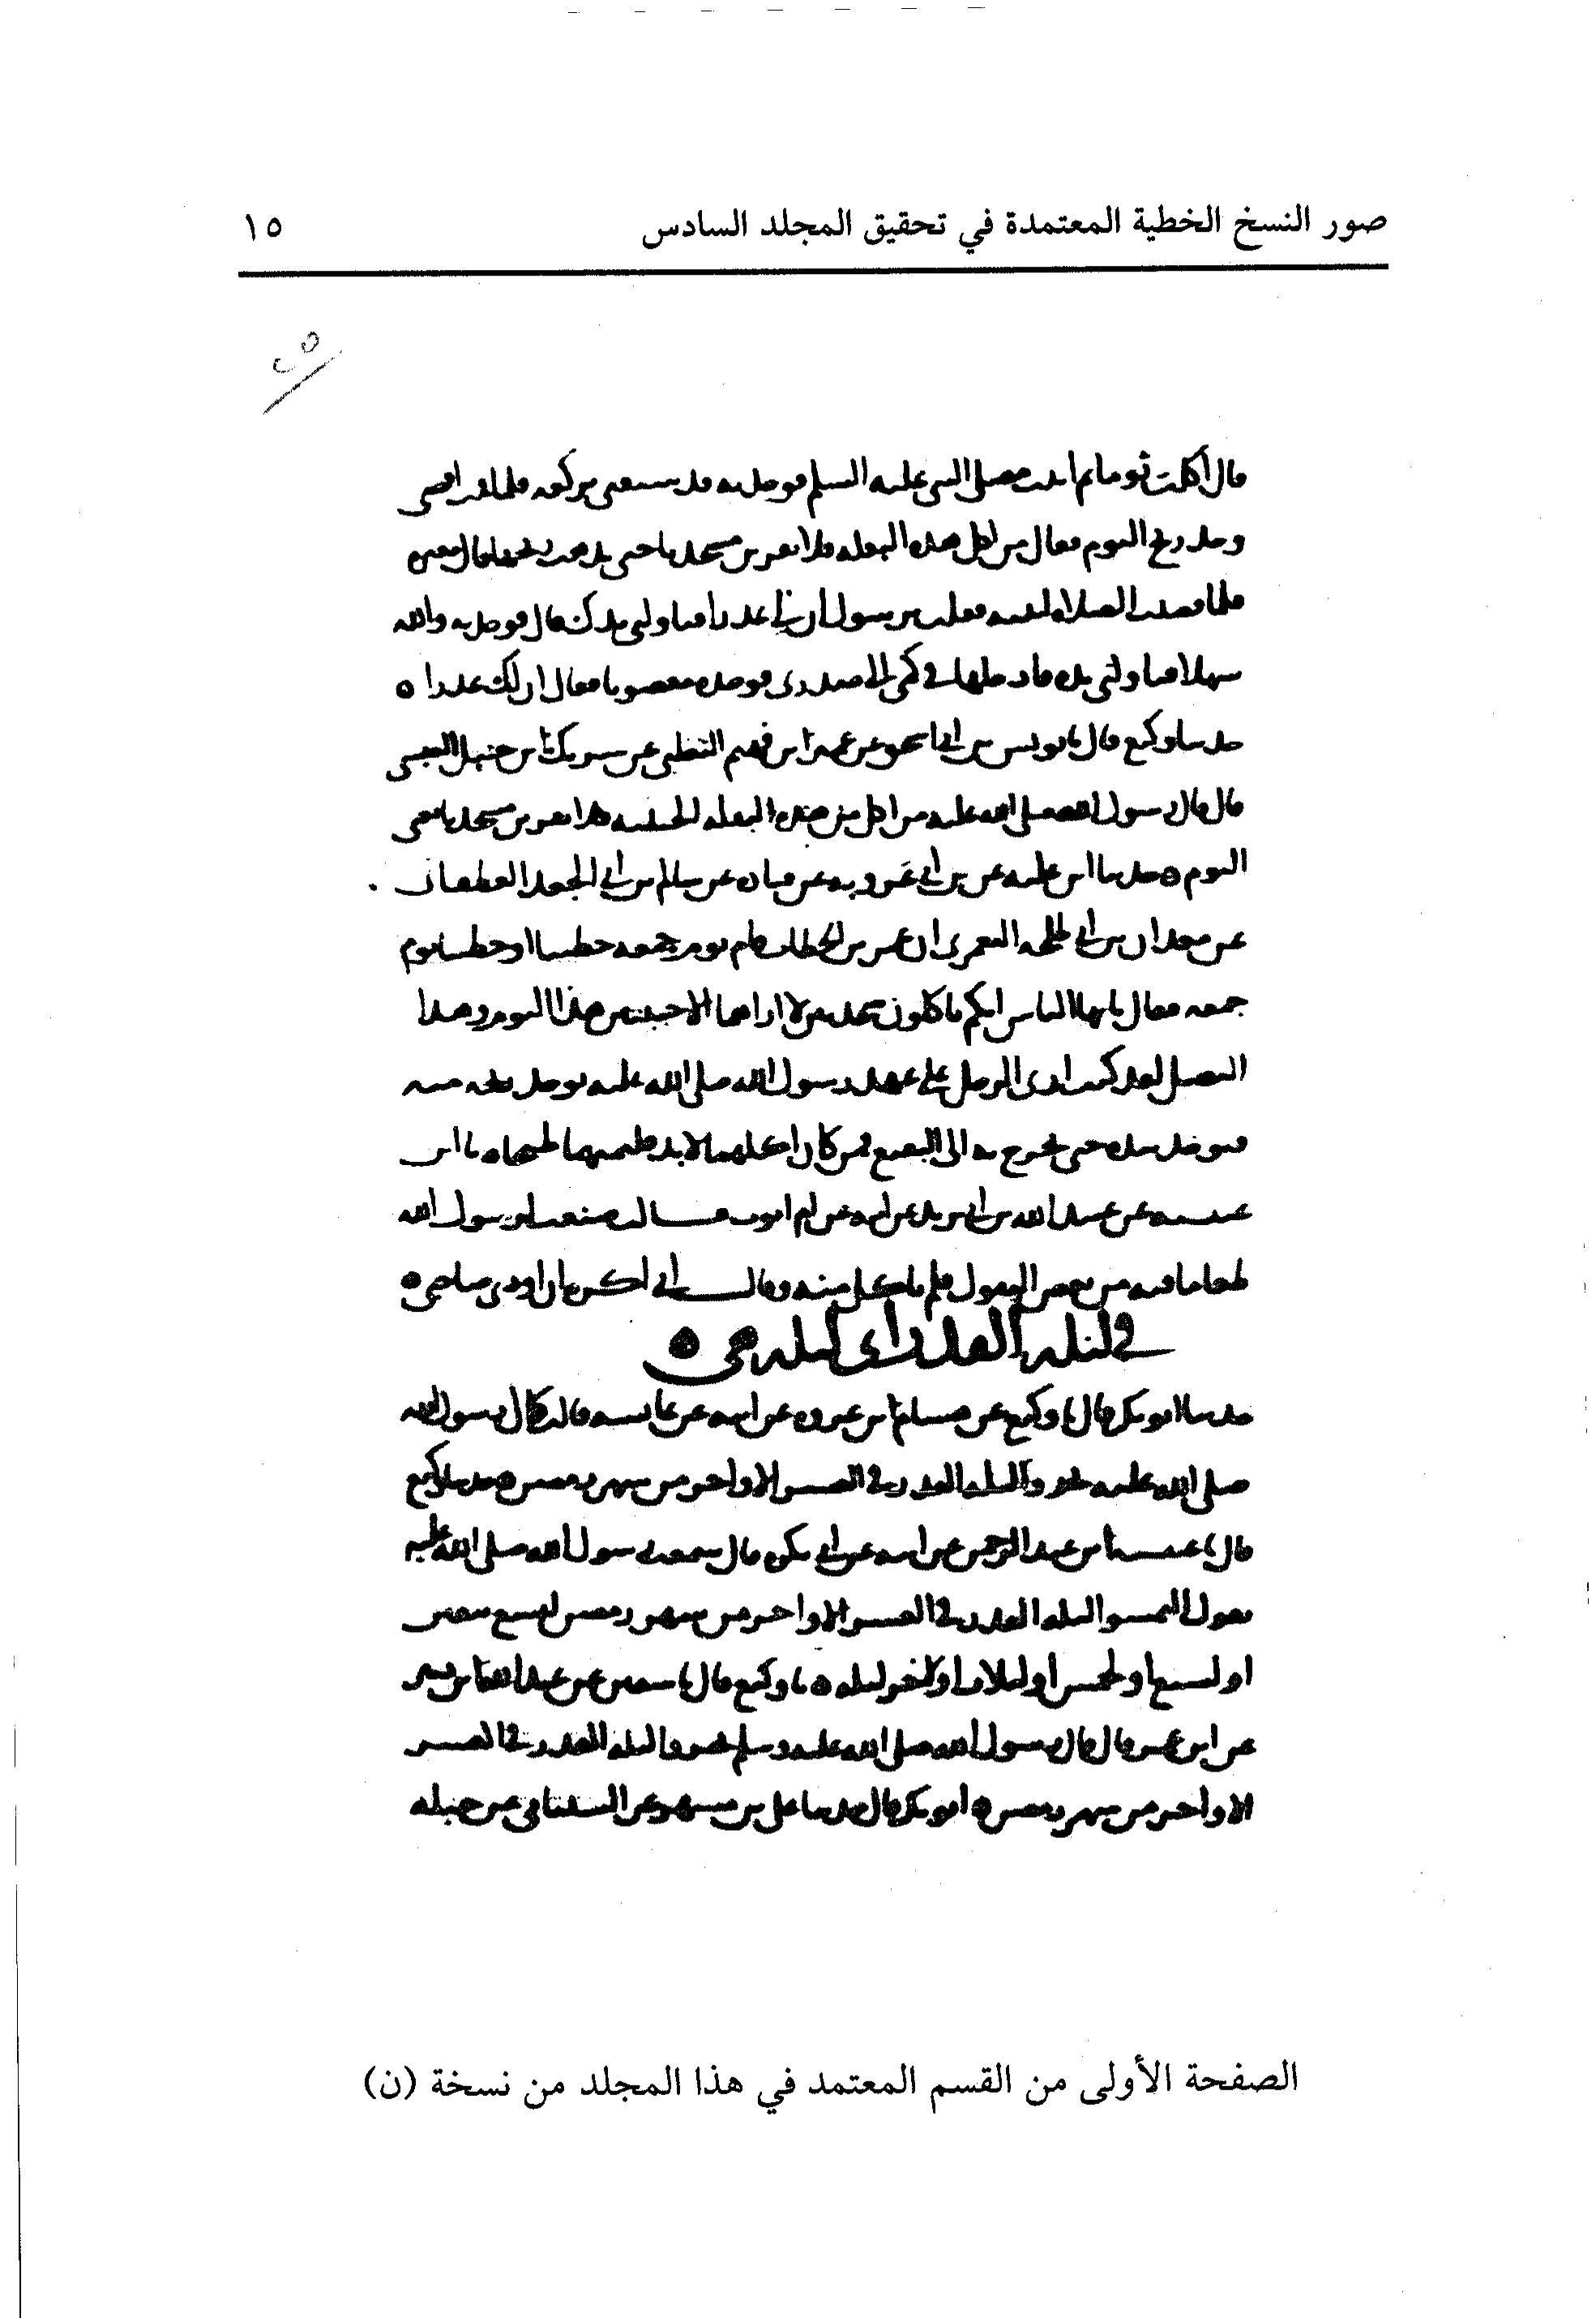 صور النسخ الخطية المعتمدة في تحقيق المجلد السادس ١٥
٢٥
قال أكلت ثوما ثم اتيت مصلى النبي عليه السلم فوجدته قد سبقني بركعه فلما قمت اقضي
وجد ريح الثوم فقال من اكل هذه البقله فلا يقربن مسجدنا حتى يذهب ريحها قال مغيره
فلما قضيت الصلاه اتيته فقلت يرسول ان لي عذرا فناولني يدك قال فوجدته والله
سهلا فناولني يده فادخلها في كمي الى صدري فوجده معصوبا فقال ان لك عذرا ه
حدثنا وكيع قال نا يونس بن ابي اسحق عن عمير بن قميم التغلبي عن شريك بن حنبل العبسي
قال قال رسول الله صلى الله عليه من اكل من هذه البقله الخبيثه فلا يقربن مسجدنا يعني
الثوم ه حدثنا ابن عليه عن بن ابي عروبه عن قتاده عن سالم بن ابي الجعد الغطفاني
عن معدان بن ابي طلحه اليعمري ان عمر بن الخطاب قام يوم جمعه خطيبا او خطب يوم
جمعه فقال يا يها الناس انكم تاكلون شجرتين لا اراهما الا خبيثتين هذا الثوم وهذا
البصل لقد كنت ارى الرجل على عهد رسول الله صلى الله عليه يوجد ريحه منه
فيوخذ بيده حتى يخرج به الى البقيع فمن كان اكلهما لا بد فليمتهما طبخا ه نا ابن
عيينه عن عبيد الله بن ابي يزيد عن ابيه عن ام ايوب قالت صنعت لرسول الله
طعاما فيه من بعض البقول فلم ياكل منه وقال اني اكره ان اوذي صاحبي ه
في ليله القدر اي ليله هي ه
حدثنا ابو بكر قال نا وكيع عن هشام بن عروه عن ابيه عن عايشه قالت قال رسول الله
صلى الله عليه تحروا ليله القدر في العشر الاواخر من شهر رمضن ه حدثنا وكيع
قال نا عيينه بن عبد الرحمن عن ابيه عن ابي بكره قال سمعت رسول الله صلى الله عليه
يقول التمسوا ليله القدر في العشر الاواخر من شهر رمضن لتسع بقين
او لسبع او لخمس او لثلاث او لاخر ليله ه نا وكيع قال نا سفين عن عبد الله بن دينر
عن ابن عمر قال قال رسول الله صلى الله عليه وسلم تحروا ليله القدر في العشر
الاواخر من شهر رمضن ه ابو بكر قال حدثنا علي بن مسهر عن الشيباني عن جبله
الصفحة الأولى من القسم المعتمد في هذا المجلد من نسخة (ن)